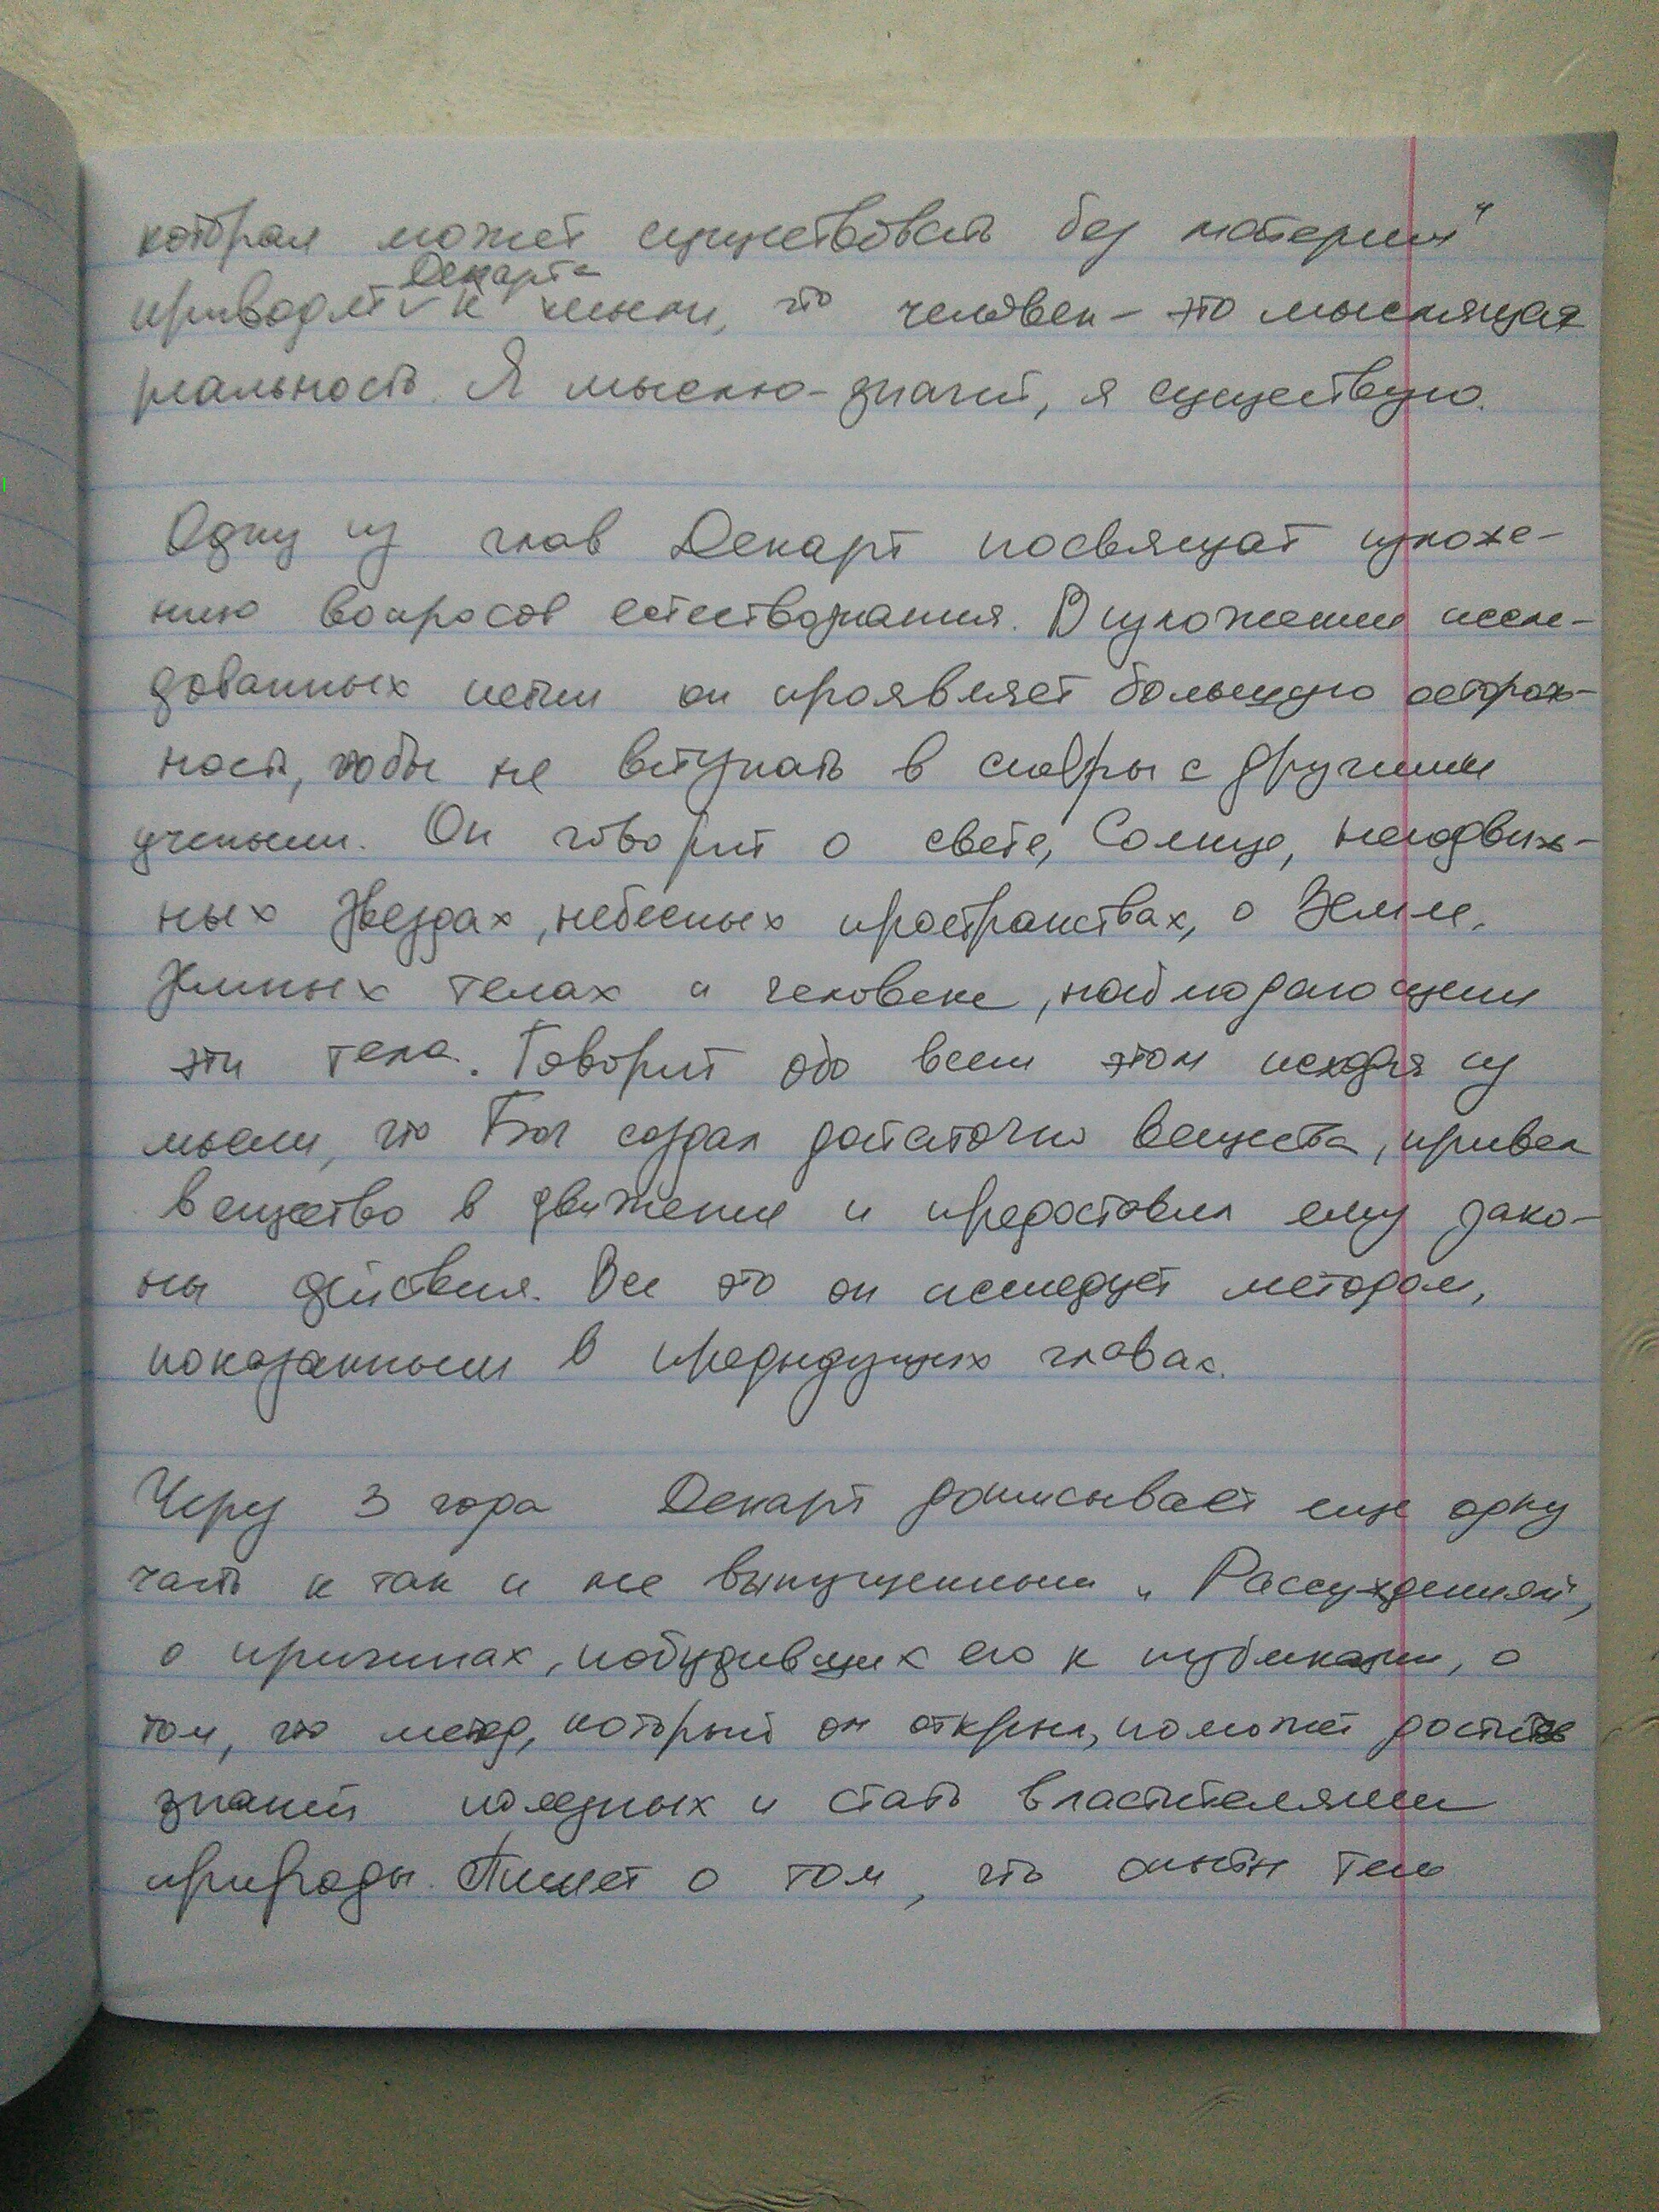 которая может существовать без материи"
Декарта
приводят к мысли, что человек - это мыслящая
реальность. Я мыслю - значит, я существую.
Одну из глав Декарт посвящает изложе-
нию вопросов естествознания. В изложении иссле-
дованных истин он проявляет большую осторож-
ность, чтобы не вступать в споры с другими
учеными. Он говорит о свете, Солнце, неподвиж-
ных звездах, небесных пространствах, о Земле,
земных телах и человеке, наблюдающем
эти тела. Говорит обо всем этом исходя из
мысли, что Бог создал достаточно вещества, привел
вещество в движение и предоставил ему зако-
ны действия. Все это он исследует методом,
показанным в предыдущих главах.
Через 3 года Декарт дописывает еще одну
часть к так и не выпущенным "Рассуждениям",
о причинах, побудивших его к публикации, о
том, что метод, который он открыл, поможет достичь
знаний полезных и стать властителями
природы. Пишет о том, что опыты